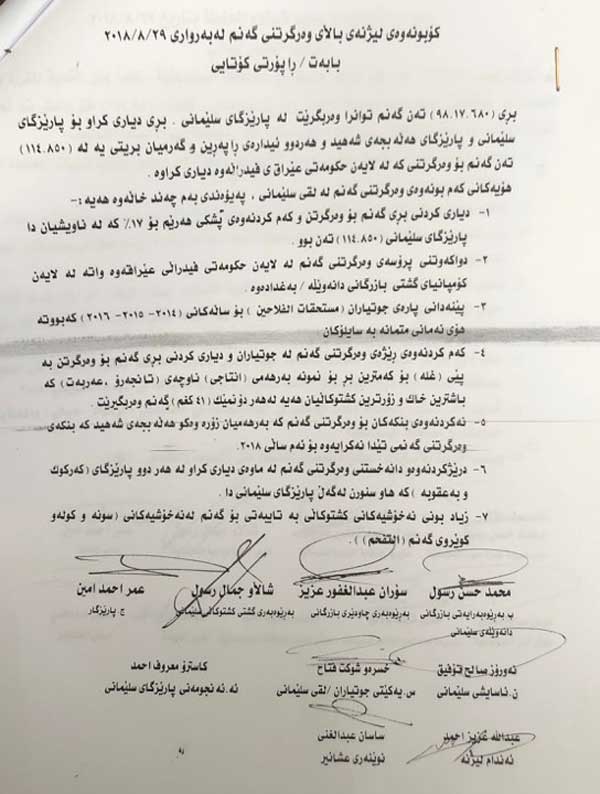 کۆبونەوەی لیژنەی بالای وەرگرتنی گەنم لەبەرواری ٢٠١٨/٨/٢٩
بابەت / راپۆرتی کۆتایی
بڕی (٩٨.١٧.٦٨٠) تەن گەنم توانرا وەربگریت لە پارێزگای سلێمانی . بڕی دیاری کراو بۆ پارێزگای
سلێمانی و پارێزگای هەڵەبجەی شەهید و هەردوو ئیدارەی راپەڕین و گەرمیان بریتی یە لە (١١٤.٨٥٠)
تەن گەنم بۆ وەرگرتنی کە لە لایەن حکومەتی عێراقی فیدراڵەوە دیاری کراوە .
هۆیەکانی کەم بونەوەی وەرگرتنی گەنم لە لقی سلێمانی ، پەیوەندی بەم چەند خاڵەوە هەیە :-
١- دیاری کردنی بڕی گەنم بۆ وەرگرتن و کەم کردنەوەی پشکی هەرێم بۆ ١٧٪ کە لە ناویشیان دا
پارێزگای سلێمانی (١١٤.٨٥٠) تەن بوو .
٢- دواکەوتنی پرۆسەی وەرگرتنی گەنم لە لایەن حکومەتی فیدراڵی عێراقەوە واتە لە لایەن
کۆمپانیای گشتی بازرگانی دانەوێڵە / بەغدادەوە .
٣- پێنەدانی پارەی جوتیاران (مستحقات الفلاحین) بۆ ساڵەکانی (٢٠١٤- ٢٠١٥- ٢٠١٦) کەبووتە
هۆی نەمانی متمانە بە سایلۆکان
٤- کەم کردنەوەی رێژەی وەرگرتنی گەنم لە جوتیاران و دیاری کردنی بڕی گەنم بۆ وەرگرتن بە
پێی (غلە) بۆ کەمترین بڕ بۆ نمونە بەرهەمی (انتاجی) ناوچەی (تانجەرۆ ،عەربەت) کە
باشترین خاک و زۆرترین کشتوکاڵیان هەیە لەهەر دۆنمێک (٤١ کغم) گەنم وەربگیرێت .
٥- نەکردنەوەی بنکەکان بۆ وەرگرتنی گەنم کە بەرهەمیان زۆرە وەکو هەڵەبجەی شەهید کە بنکەی
وەرگرتنی گەنمی تێدا نەکرایەوە بۆ ئەم ساڵی ٢٠١٨.
٦- درێژکردنەوو دانەخستنی وەرگرتنی گەنم لە ماوەی دیاری کراو لە هەر دوو پارێزگای (کەرکوک
و بەعقوبە ) کە هاو سنورن لەگەڵ پارێزگای سلێمانی دا .
٧- زیاد بونی نەخۆشیەکانی کشتوکاڵی بە تایبەتی بۆ گەنم لەنەخۆشیەکانی (سونە و کولەو
کوێروی گەنم (التفحم) ) .
محمد حسن رسول
ب. بەڕێوەبەرایەتی بازرگانی
دانەوێڵەی سلێمانی
سۆران عبدالغفور عزیز
بەڕێوەبەری چاودێری بازرگانی
شالاو جمال رسول
بەڕێوەبەری گشتی کشتوکاڵی سلێمانی
عمر احمد امین
ج. پارێزگار
نەورۆز صالح توفیق
ن.ئاسایشی سلێمانی
خسرەو شوکت فتاح
س.یەکێتی جوتیاران / لقی سلێمانی
کاسترۆ معروف احمد
ئە.ئە نجومەنی پارێزگای سلێمانی
عبدالله عزیز احمد
ئەندام لیژنە
ساسان عبدالغنی
نوێنەری عشائیر